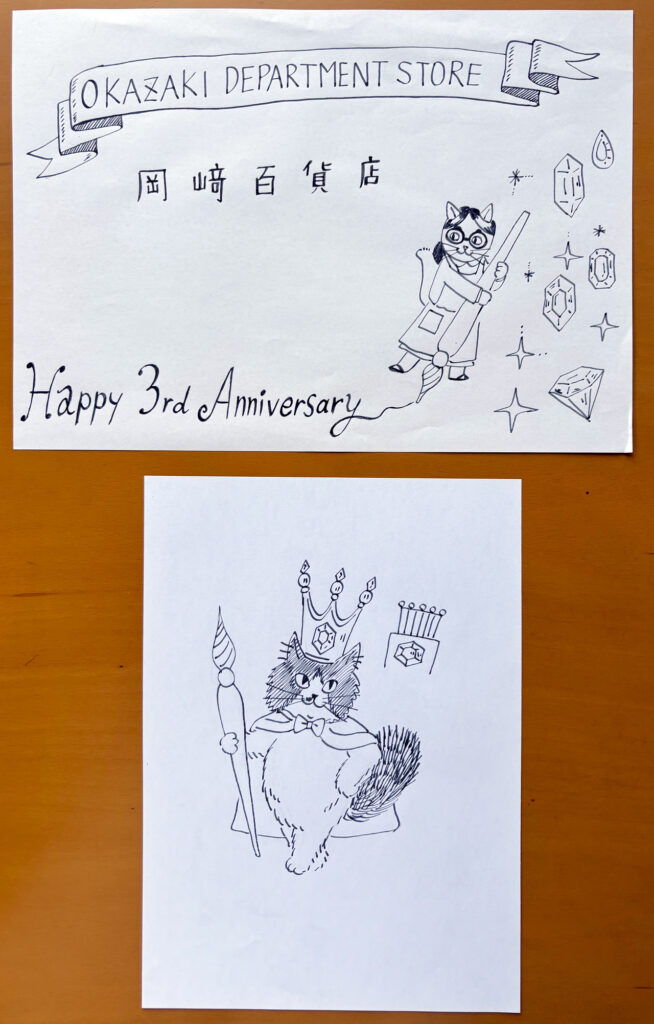 OKAZAKI DEPARTMENT STORE
岡﨑百貨店
Happy 3rd Anniversary